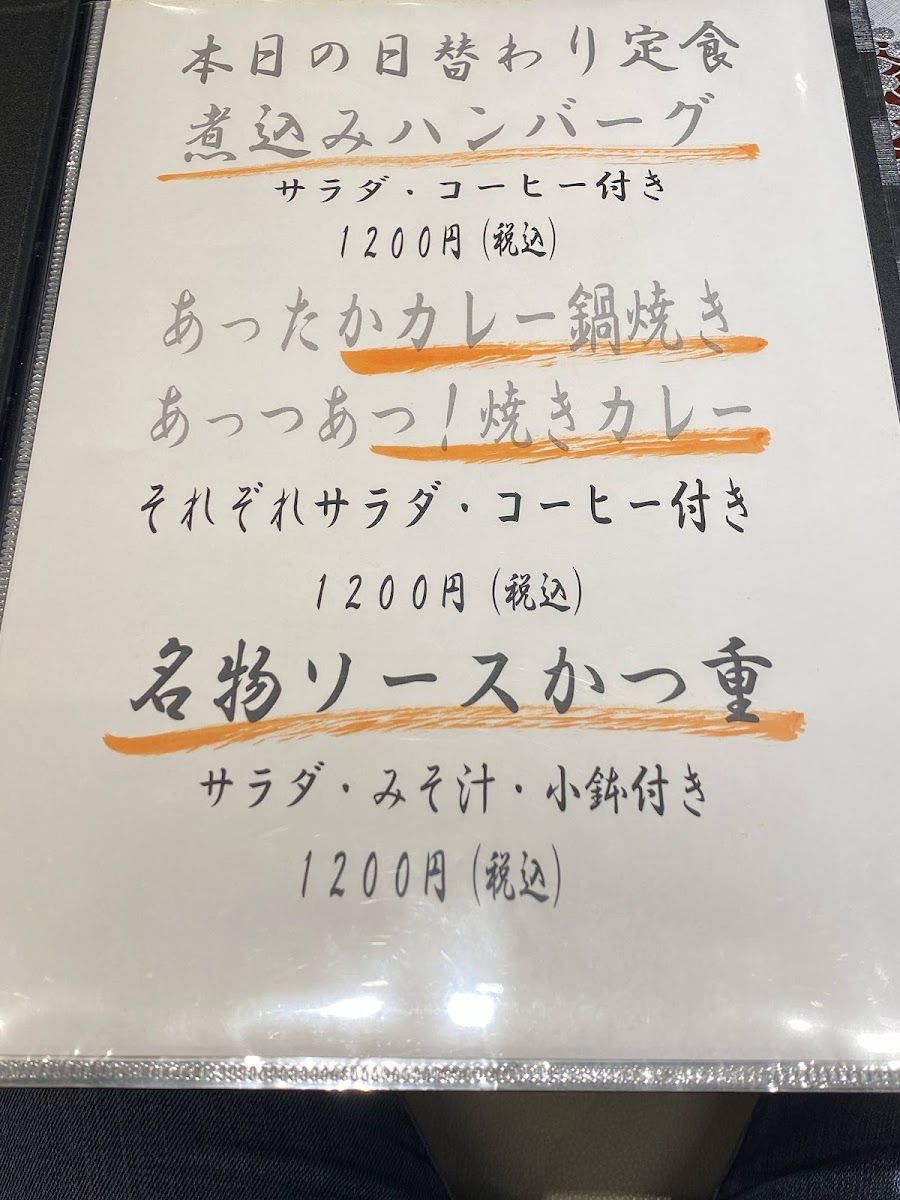 本日の日替わり定食
煮込みハンバーグ
サラダ・コーヒー付き
1200円(税込)
あったかカレー鍋焼き
あっつあつ!焼きカレー
それぞれサラダ・コーヒー付き
1200円(税込)
名物ソースかつ重
サラダ・みそ汁・小鉢付き
1200円(税込)